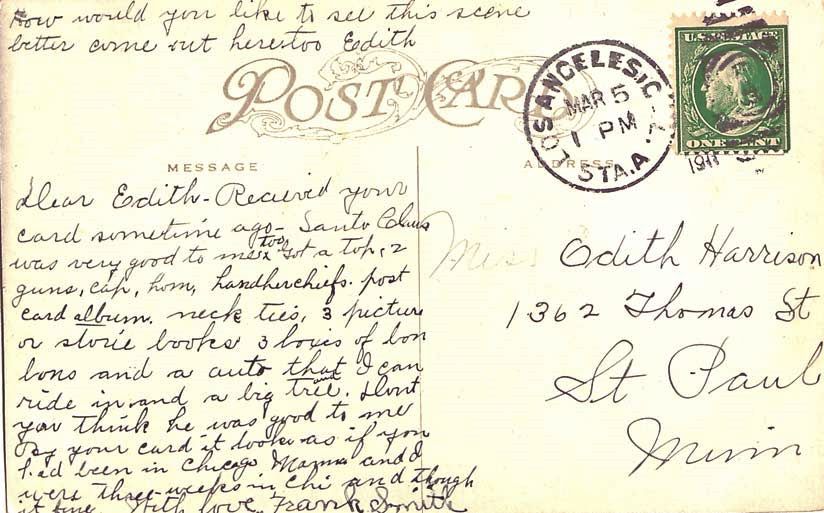 How would you like to see this scene
better come out here too Edith
POST CARD
MESSAGE
ADDRESS
LOS ANGELES, C
MAR 5
1 PM
STA. A.
1911
U.S. POSTAGE
ONE CENT
Dear Edith - Recieved your
card sometime ago - Santo Claus
was very good to me too got a top, 2
guns, cap, horn, handkerchiefs. post
card album. neck ties, 3 picture
or storie books 3 boxes of bon
bons and a auto that I can
ride in and a big tree. and Dont
you think he was good to me
By your card it looks as if you
had been in Chicago Mama and I
were three weeks in Chi and though
it fine. With love Frank Smith
Miss Edith Harrison
1362 Thomas St
St Paul
Minn